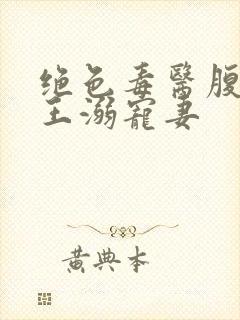 绝色毒醫腹
王溺寵妻
黄典本